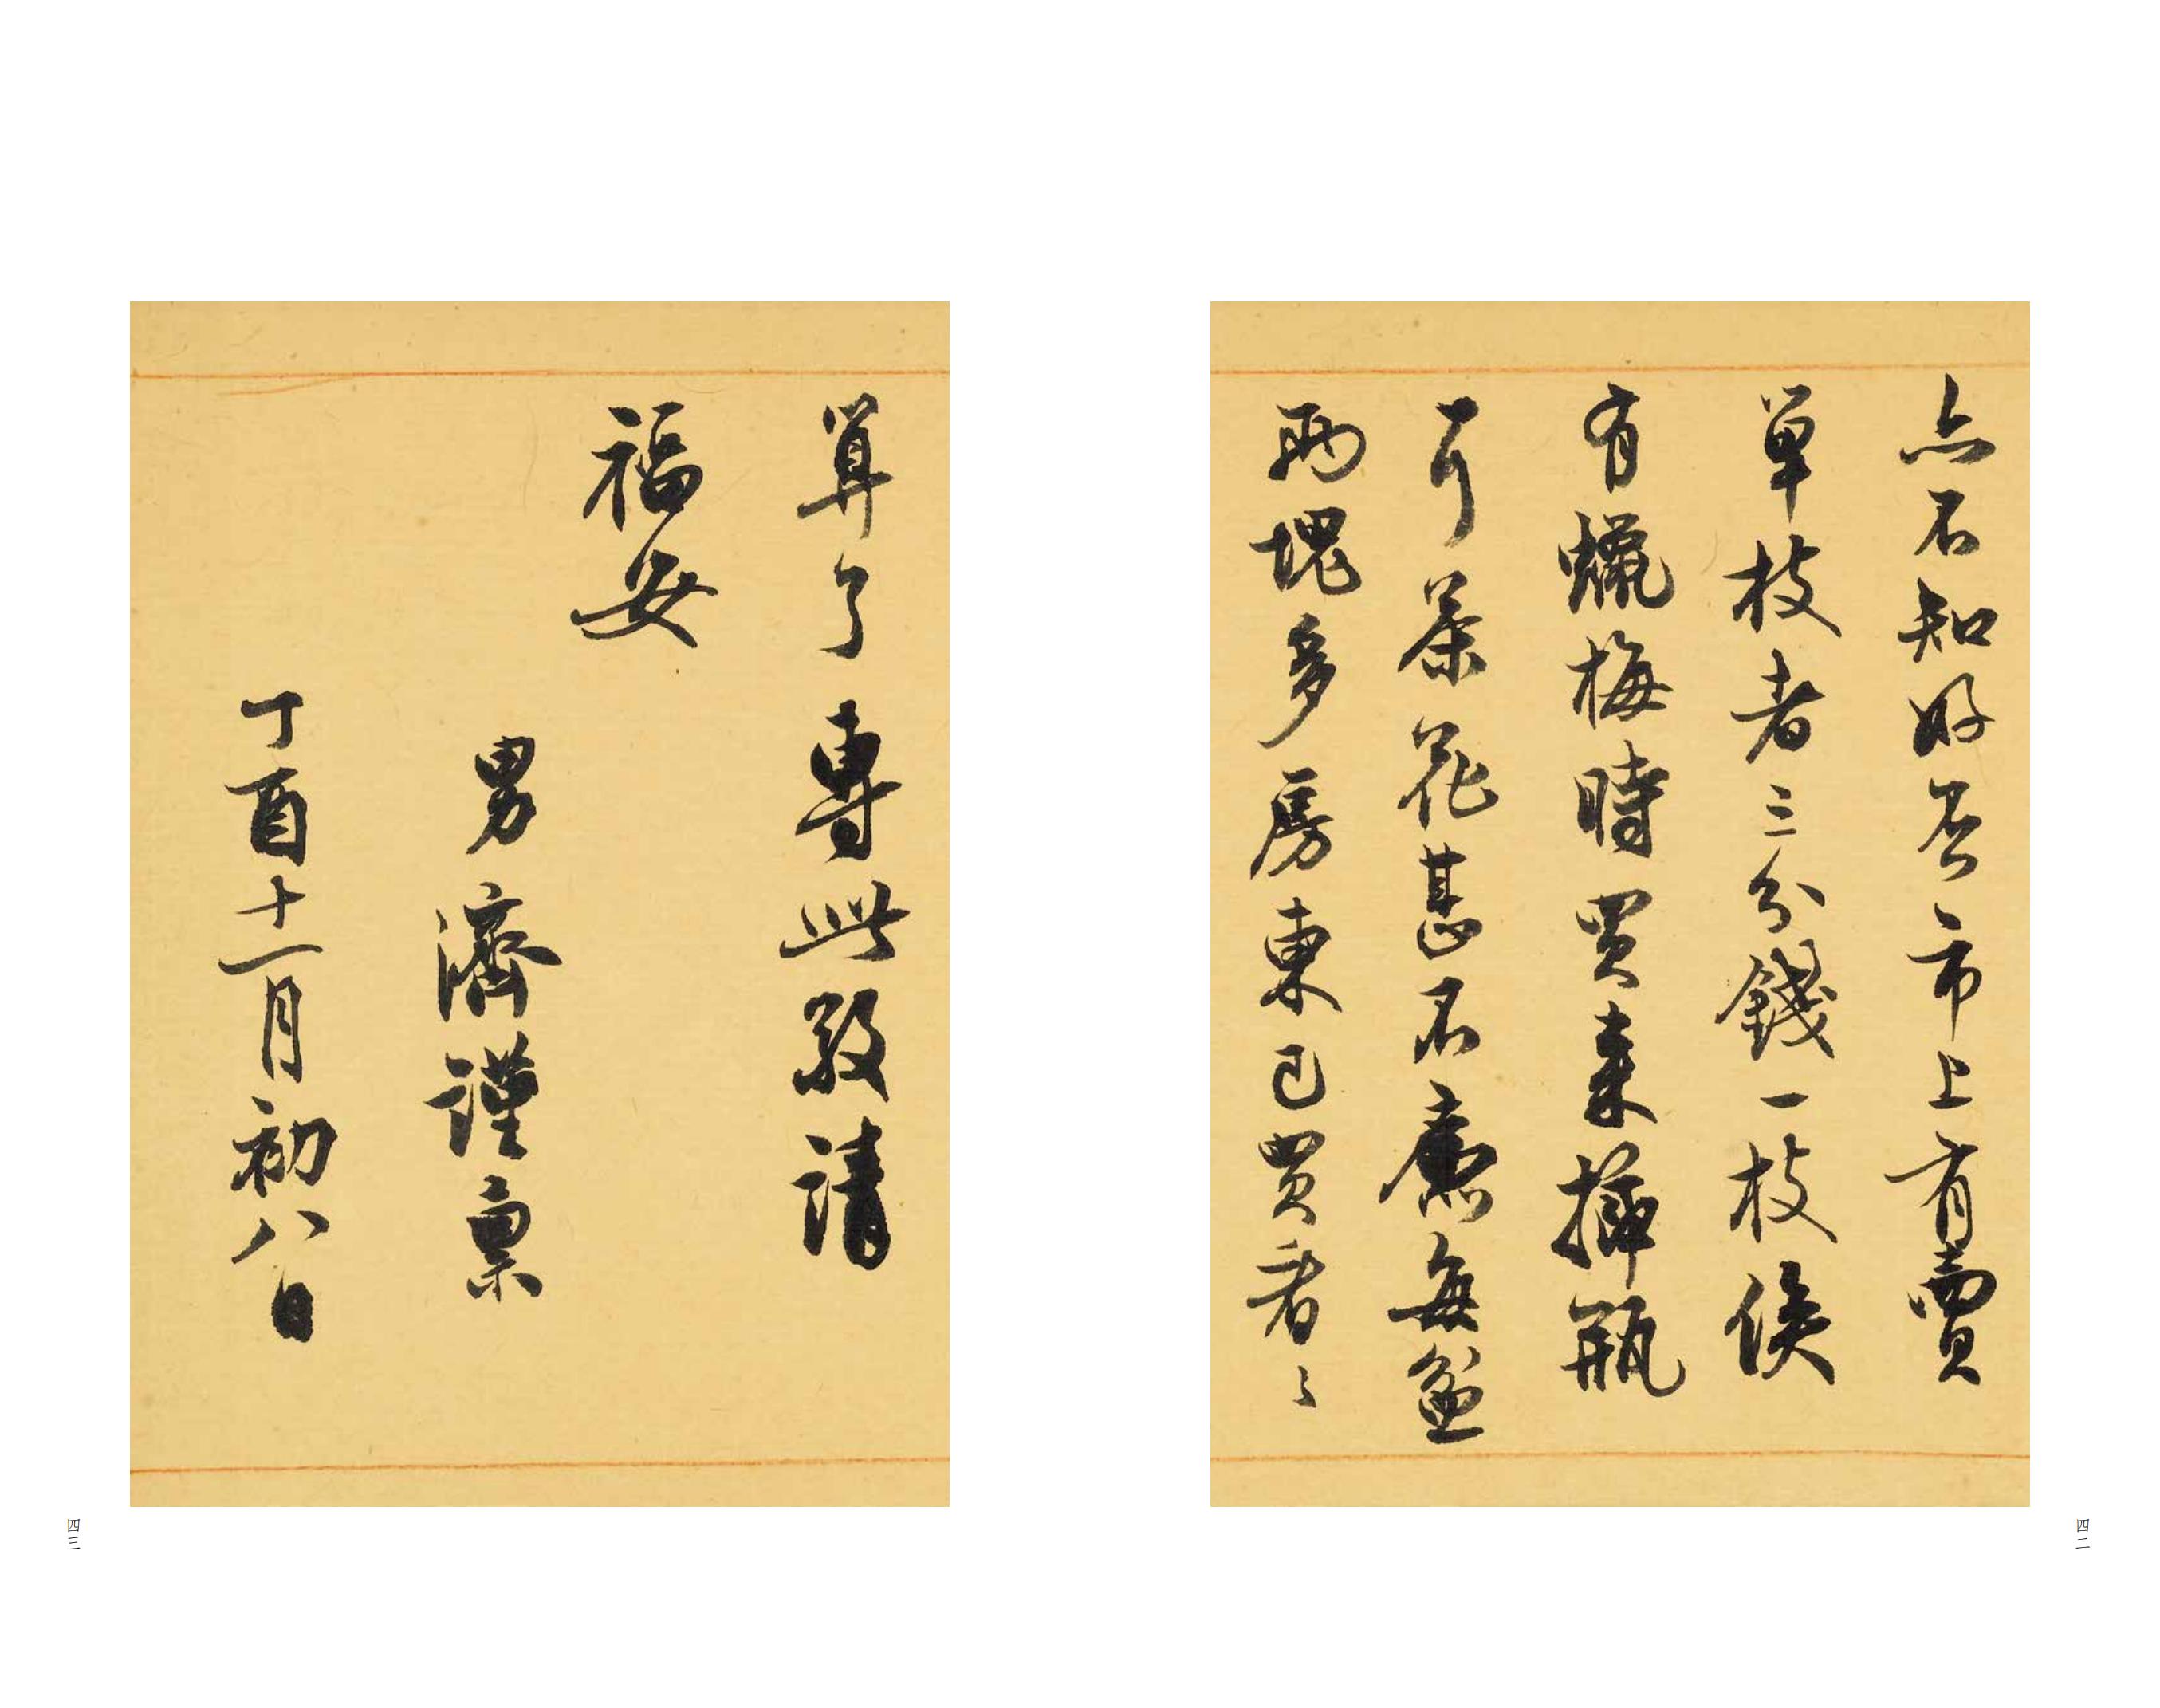 亦不知好否市上有賣
單枝者三分錢一枝俟
有蠟梅時買来插瓶
可茶花甚不廉每盆
兩塊多房東已買者〻
四二
算了專此敬請
福安
男濟謹禀
丁酉十一月初八日
四三